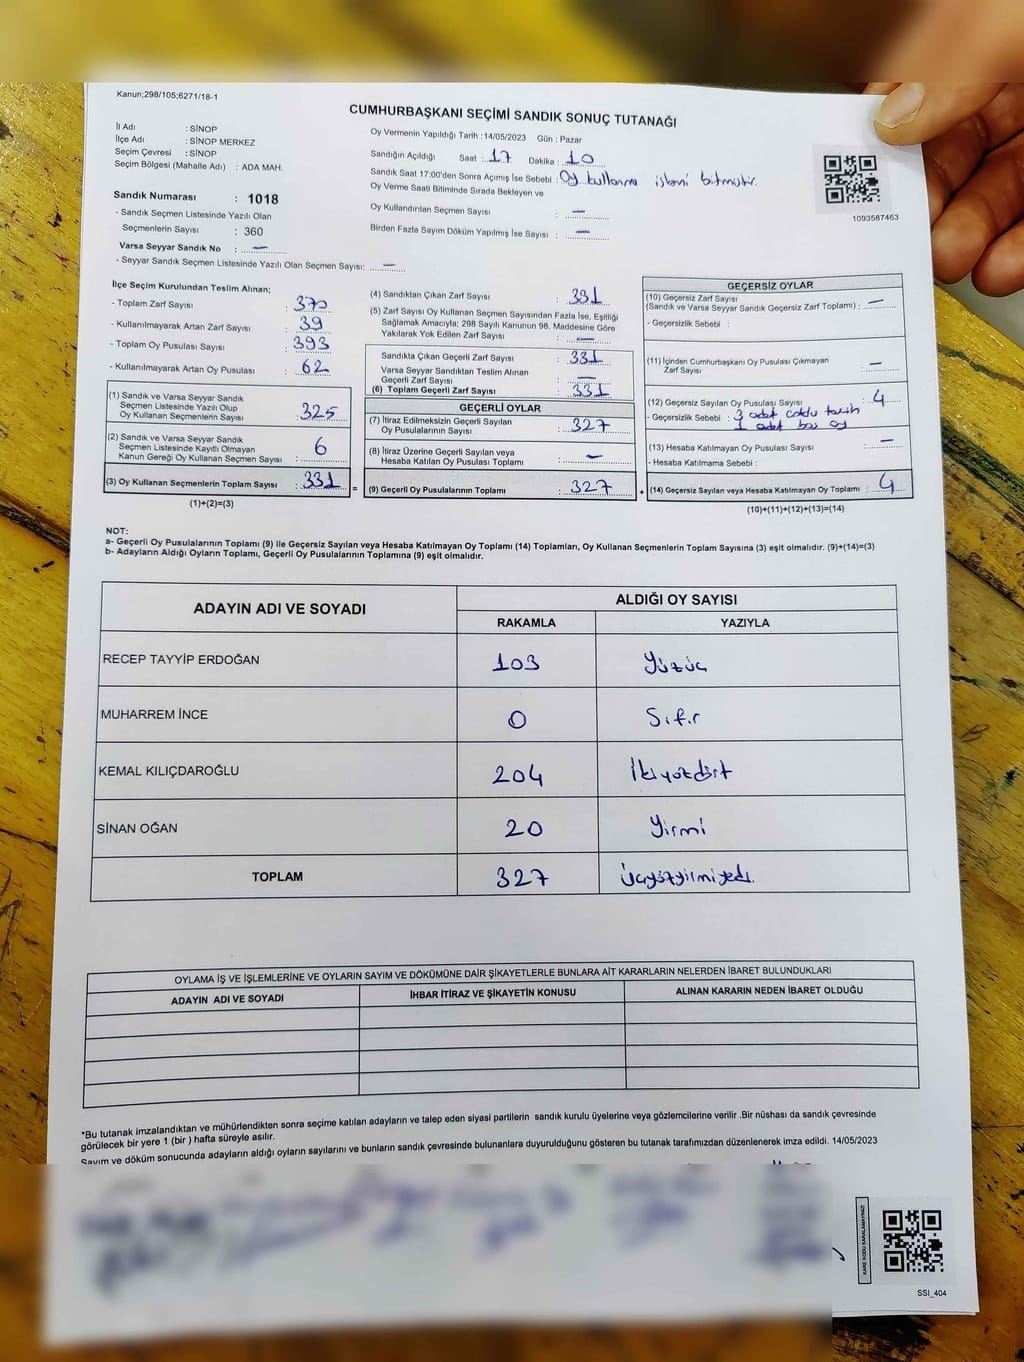 Kanun;298/105;6271/18-1
CUMHURBAŞKANI SEÇİMİ SANDIK SONUÇ TUTANAĞI
İl Adı : SİNOP
İlçe Adı : SİNOP MERKEZ
Seçim Çevresi : SİNOP
Seçim Bölgesi (Mahalle Adı) : ADA MAH.
Sandık Numarası : 1018
- Sandık Seçmen Listesinde Yazılı Olan
Seçmenlerin Sayısı : 360
Varsa Seyyar Sandık No : —
- Seyyar Sandık Seçmen Listesinde Yazılı Olan Seçmen Sayısı: —
Oy Vermenin Yapıldığı Tarih :14/05/2023 Gün : Pazar
Sandığın Açıldığı Saat : 17 Dakika : 10
Sandık Saat 17:00'den Sonra Açımış İse Sebebi : Oy kullanma işlemi bitmiştir.
Oy Verme Saati Bitiminde Sırada Bekleyen ve
Oy Kullandırılan Seçmen Sayısı : —
Birden Fazla Sayım Döküm Yapılmış İse Sayısı : —
1093587463
İlçe Seçim Kurulundan Teslim Alınan;
- Toplam Zarf Sayısı : 370
- Kullanılmayarak Artan Zarf Sayısı : 39
- Toplam Oy Pusulası Sayısı : 393
- Kullanılmayarak Artan Oy Pusulası : 62
(1) Sandık ve Varsa Seyyar Sandık
Seçmen Listesinde Yazılı Olup
Oy Kullanan Seçmenlerin Sayısı : 325
(2) Sandık ve Varsa Seyyar Sandık
Seçmen Listesinde Kayıtlı Olmayan
Kanun Gereği Oy Kullanan Seçmen Sayısı : 6
(3) Oy Kullanan Seçmenlerin Toplam Sayısı : 331
(1)+(2)=(3)
=
(4) Sandıktan Çıkan Zarf Sayısı : 331
(5) Zarf Sayısı Oy Kullanan Seçmen Sayısından Fazla İse, Eşitliği
Sağlamak Amacıyla; 298 Sayılı Kanunun 98. Maddesine Göre
Yakılarak Yok Edilen Zarf Sayısı : —
Sandıkta Çıkan Geçerli Zarf Sayısı : 331
Varsa Seyyar Sandıktan Teslim Alınan
Geçerli Zarf Sayısı : —
(6) Toplam Geçerli Zarf Sayısı : 331
GEÇERLİ OYLAR
(7) İtiraz Edilmeksizin Geçerli Sayılan
Oy Pusulalarının Sayısı : 327
(8) İtiraz Üzerine Geçerli Sayılan veya
Hesaba Katılan Oy Pusulası Toplamı : —
(9) Geçerli Oy Pusulalarının Toplamı : 327
+
GEÇERSİZ OYLAR
(10) Geçersiz Zarf Sayısı
(Sandık ve Varsa Seyyar Sandık Geçersiz Zarf Toplamı) : —
- Geçersizlik Sebebi :
(11) İçinden Cumhurbaşkanı Oy Pusulası Çıkmayan
Zarf Sayısı : —
(12) Geçersiz Sayılan Oy Pusulası Sayısı : 4
- Geçersizlik Sebebi : 3 adet
1 adet boş oy
(13) Hesaba Katılmayan Oy Pusulası Sayısı : —
- Hesaba Katılmama Sebebi :
(14) Geçersiz Sayılan veya Hesaba Katılmayan Oy Toplamı : 4
(10)+(11)+(12)+(13)=(14)
NOT:
a- Geçerli Oy Pusulalarının Toplamı (9) ile Geçersiz Sayılan veya Hesaba Katılmayan Oy Toplamı (14) Toplamları, Oy Kullanan Seçmenlerin Toplam Sayısına (3) eşit olmalıdır. (9)+(14)=(3)
b- Adayların Aldığı Oyların Toplamı, Geçerli Oy Pusulalarının Toplamına (9) eşit olmalıdır.
ADAYIN ADI VE SOYADI ALDIĞI OY SAYISI
RAKAMLA YAZIYLA
RECEP TAYYİP ERDOĞAN 103 Yüzüç
MUHARREM İNCE 0 Sıfır
KEMAL KILIÇDAROĞLU 204 İkiyüzdört
SİNAN OĞAN 20 Yirmi
TOPLAM 327 Üçyüzyirmiyedi.
OYLAMA İŞ VE İŞLEMLERİNE VE OYLARIN SAYIM VE DÖKÜMÜNE DAİR ŞİKAYETLERLE BUNLARA AİT KARARLARIN NELERDEN İBARET BULUNDUKLARI
ADAYIN ADI VE SOYADI İHBAR İTİRAZ VE ŞİKAYETİN KONUSU ALINAN KARARIN NEDEN İBARET OLDUĞU
*Bu tutanak imzalandıktan ve mühürlendikten sonra seçime katılan adayların ve talep eden siyasi partilerin sandık kurulu üyelerine veya gözlemcilerine verilir .Bir nüshası da sandık çevresinde
görülecek bir yere 1 (bir ) hafta süreyle asılır.
Sayım ve döküm sonucunda adayların aldığı oyların sayılarını ve bunların sandık çevresinde bulunanlara duyurulduğunu gösteren bu tutanak tarafımızdan düzenlenerek imza edildi. 14/05/2023
KARE KODU KARALAMAYINIZ!
SSI_404